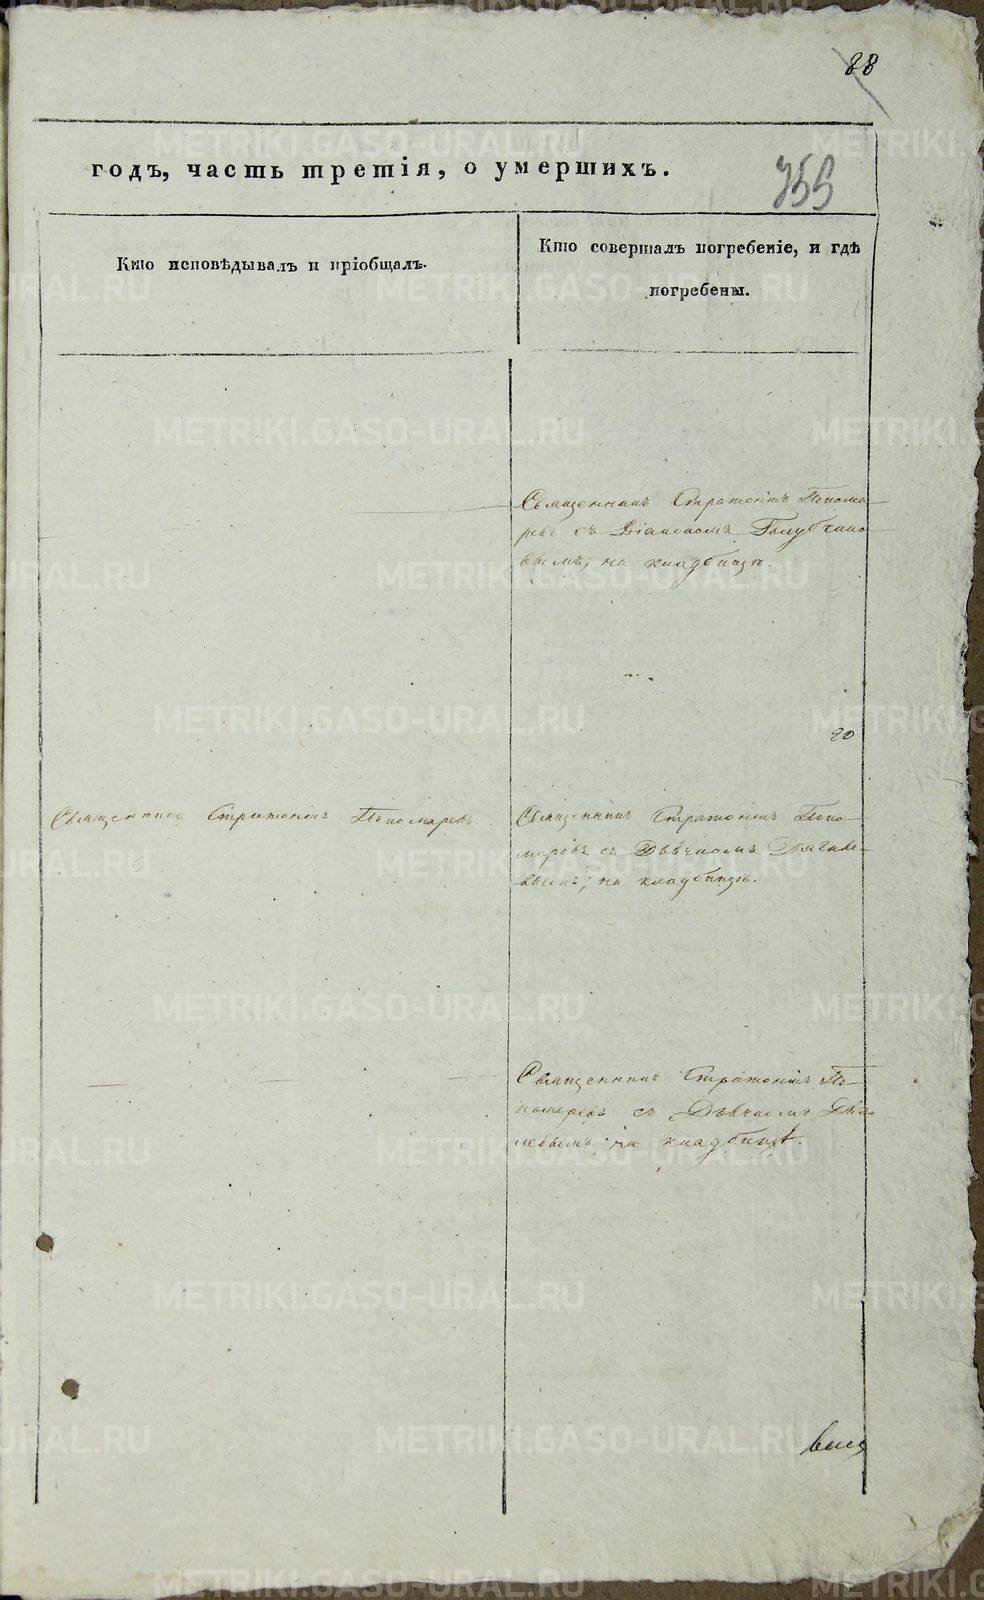 88
годъ, часть третія, о умершихъ.
355
Кто исповѣдывалъ и пріобщалъ.
Кто совершалъ погребеніе, и гдѣ
погребены.
Священникъ Стратоникъ Понома-
ревъ съ Діакономъ Голубчико-
вымъ, на кладбищѣ.
20
Священникъ Стратоникъ Пономаревъ.
Священникъ Стратоникъ Поно-
маревъ съ Дьячкомъ
вымъ, на кладбищѣ.
Священникъ Стратоникъ По-
номаревъ съ Дьячкомъ
левымъ, на кладбищѣ.
METRIKI.GASO-URAL.RU